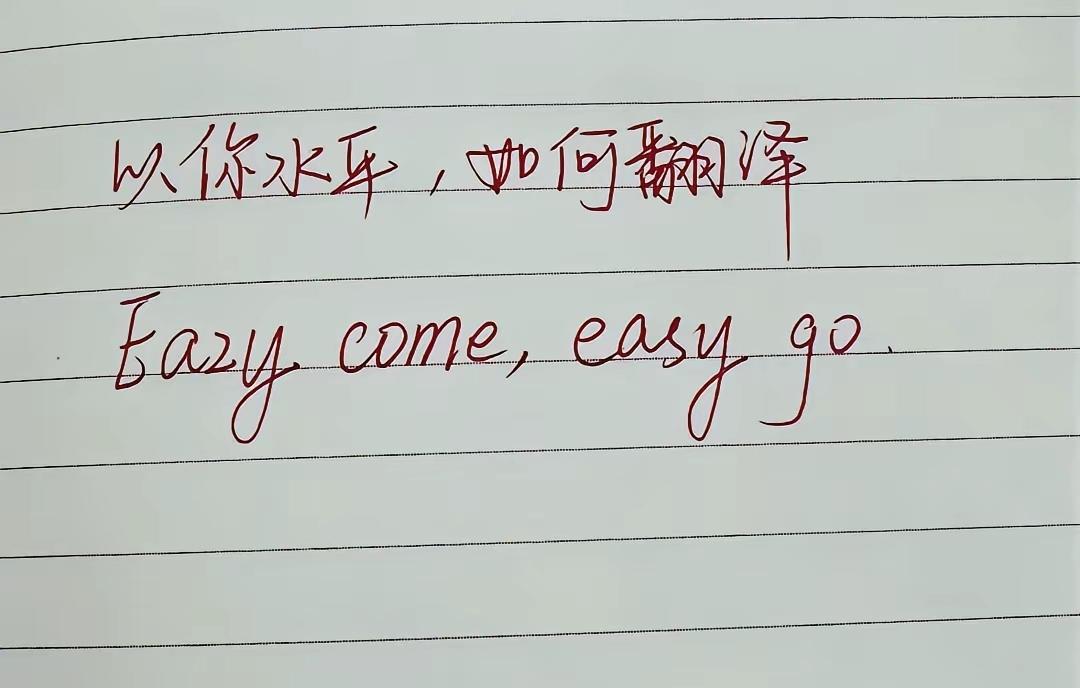 以你水平，如何翻译
Eazy come, easy go.